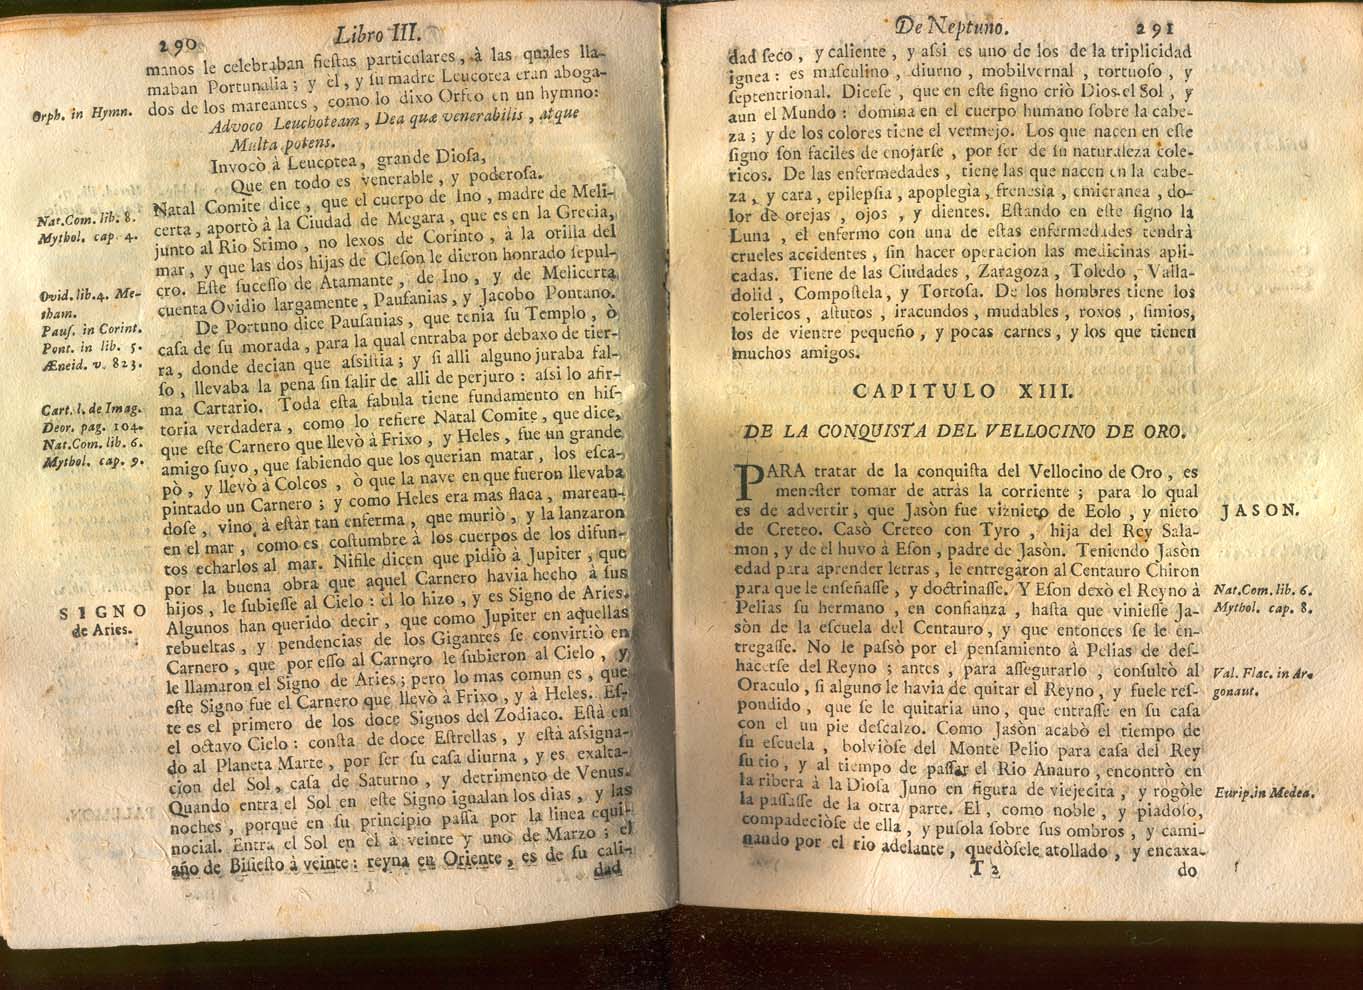 290 Libro III.
manos le celebraban fiestas particulares, à las quales lla-
maban Portunalia; y èl, y su madre Leucotea eran aboga-
Orph. in Hymn.
dos de los mareantes, como lo dixo Orfeo en un hymno:
Advoco Leuchoteam, Dea quæ venerabilis, atque
Multa potens.
Invocò à Leucotea, grande Diosa,
Que en todo es venerable, y poderosa.
Nat.Com. lib. 8.
Mythol. cap. 4.
Natal Comite dice, que el cuerpo de Ino, madre de Meli-
certa, aportò à la Ciudad de Megara, que es en la Grecia,
junto al Rio Stimo, no lexos de Corinto, à la orilla del
mar, y que las dos hijas de Cleson le dieron honrado sepul-
Ovid. lib.4. Me-
tham.
cro. Este sucesso de Atamante, de Ino, y de Melicerta
cuenta Ovidio largamente, Pausanias, y Jacobo Pontano.
Paus. in Corint.
Pont. in lib. 5.
Æneid. v. 823.
De Portuno dice Pausanias, que tenia su Templo, ò
casa de su morada, para la qual entraba por debaxo de tier-
ra, donde decian que assistia; y si alli alguno juraba fal-
so, llevaba la pena sin salir de alli de perjuro: assi lo afir-
Cart. l. de Imag.
Deor. pag. 104.
Nat.Com. lib. 6.
Mythol. cap. 9.
ma Cartario. Toda esta fabula tiene fundamento en his-
toria verdadera, como lo refiere Natal Comite, que dice,
que este Carnero que llevò à Frixo, y Heles, fue un grande
amigo suyo, que sabiendo que los querian matar, los esca-
pò, y llevò à Colcos, ò que la nave en que fueron llevaba
pintado un Carnero; y como Heles era mas flaca, marean-
dose, vino à estàr tan enferma, que muriò, y la lanzaron
en el mar, como es costumbre à los cuerpos de los difun-
tos echarlos al mar. Nifile dicen que pidiò à Jupiter, que
por la buena obra que aquel Carnero havia hecho à sus
SIGNO
de Aries.
hijos, le subiesse al Cielo: èl lo hizo, y es Signo de Aries.
Algunos han querido decir, que como Jupiter en aquellas
rebueltas, y pendencias de los Gigantes se convirtiò en
Carnero, que por esso al Carnero le subieron al Cielo, y
le llamaron el Signo de Aries; pero lo mas comun es, que
este Signo fue el Carnero que llevò à Frixo, y à Heles. Es-
te es el primero de los doce Signos del Zodiaco. Està en
el octavo Cielo: consta de doce Estrellas, y està assigna-
do al Planeta Marte, por ser su casa diurna, y es exalta-
cion del Sol, casa de Saturno, y detrimento de Venus.
Quando entra el Sol en este Signo igualan los dias, y las
noches, porque en su principio passa por la linea equi-
nocial. Entra el Sol en èl à veinte y uno de Marzo; el
año de Bisiesto à veinte: reyna en Oriente, es de su cali-
dad
De Neptuno. 291
dad seco, y caliente, y assi es uno de los de la triplicidad
ignea: es masculino, diurno, mobilvernal, tortuoso, y
septentrional. Dicese, que en este signo criò Dios el Sol, y
aun el Mundo: domina en el cuerpo humano sobre la cabe-
za; y de los colores tiene el vermejo. Los que nacen en este
signo son faciles de enojarse, por ser de su naturaleza cole-
ricos. De las enfermedades, tiene las que nacen en la cabe-
za, y cara, epilepsia, apoplegia, frenesia, emicranea, do-
lor de orejas, ojos, y dientes. Estando en este signo la
Luna, el enfermo con una de estas enfermedades tendrà
crueles accidentes, sin hacer operacion las medicinas apli-
cadas. Tiene de las Ciudades, Zaragoza, Toledo, Valla-
dolid, Compostela, y Tortosa. De los hombres tiene los
colericos, astutos, iracundos, mudables, roxos, simios,
los de vientre pequeño, y pocas carnes, y los que tienen
muchos amigos.
CAPITULO XIII.
DE LA CONQUISTA DEL VELLOCINO DE ORO.
PARA tratar de la conquista del Vellocino de Oro, es
menester tomar de atràs la corriente; para lo qual
JASON.
es de advertir, que Jasòn fue viznieto de Eolo, y nieto
de Creteo. Casò Creteo con Tyro, hija del Rey Sala-
mon, y de èl huvo à Eson, padre de Jasòn. Teniendo Jasòn
edad para aprender letras, le entregaron al Centauro Chiron
Nat.Com. lib. 6.
Mythol. cap. 8.
para que le enseñasse, y doctrinasse. Y Eson dexò el Reyno à
Pelias su hermano, en confianza, hasta que viniesse Ja-
sòn de la escuela del Centauro, y que entonces se le en-
tregasse. No le passò por el pensamiento à Pelias de des-
Val. Flac. in Ar-
gonaut.
hacerse del Reyno; antes, para assegurarlo, consultò al
Oraculo, si alguno le havia de quitar el Reyno, y fuele res-
pondido, que se le quitaria uno, que entrasse en su casa
con el un pie descalzo. Como Jasòn acabò el tiempo de
su escuela, bolviòse del Monte Pelio para casa del Rey
su tio, y al tiempo de passar el Rio Anauro, encontrò en
Eurip.in Medea.
la ribera à la Diosa Juno en figura de viejecita, y rogòle
la passasse de la otra parte. El, como noble, y piadoso,
compadeciòse de ella, y pusola sobre sus ombros, y cami-
nando por el rio adelante, quedòsele atollado, y encaxa-
T 2 do